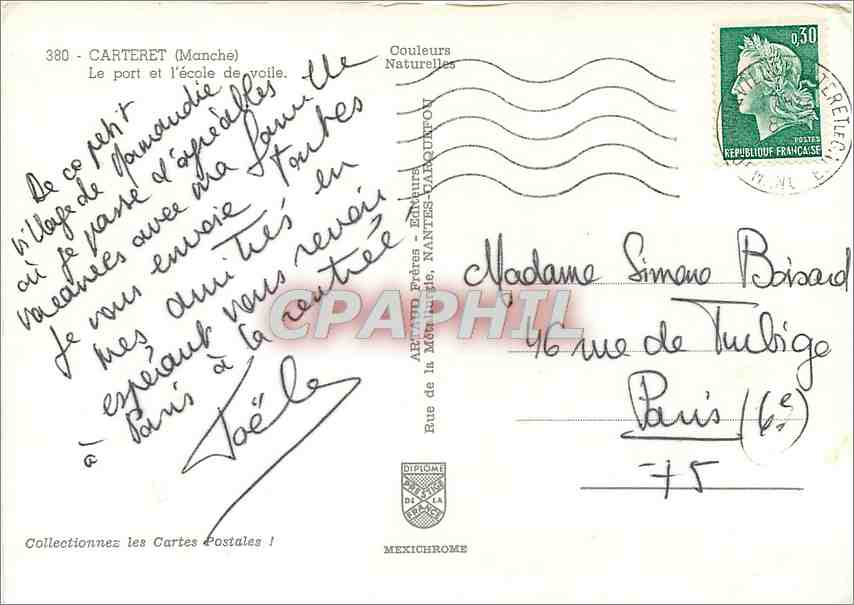 380 - CARTERET (Manche)
Le port et l'école de voile.
Couleurs
Naturelles
0,30
POSTES
REPUBLIQUE FRANÇAISE
De ce petit
village de Normandie
où je passe d'agréables
vacances avec ma famille
Je vous envoie toutes
mes amitiés en
espérant vous revoir
à Paris à la rentrée
Joëlle
ARTAUD Frères - Editeurs
Rue de la Métallurgie, NANTES-CARQUEFOU
CPAPHIL
Madame Simone Boisard
46 rue de Turbigo
Paris (6e)
75
DIPLOME
PRESTIGE
DE LA
FRANCE
MEXICHROME
Collectionnez les Cartes Postales !